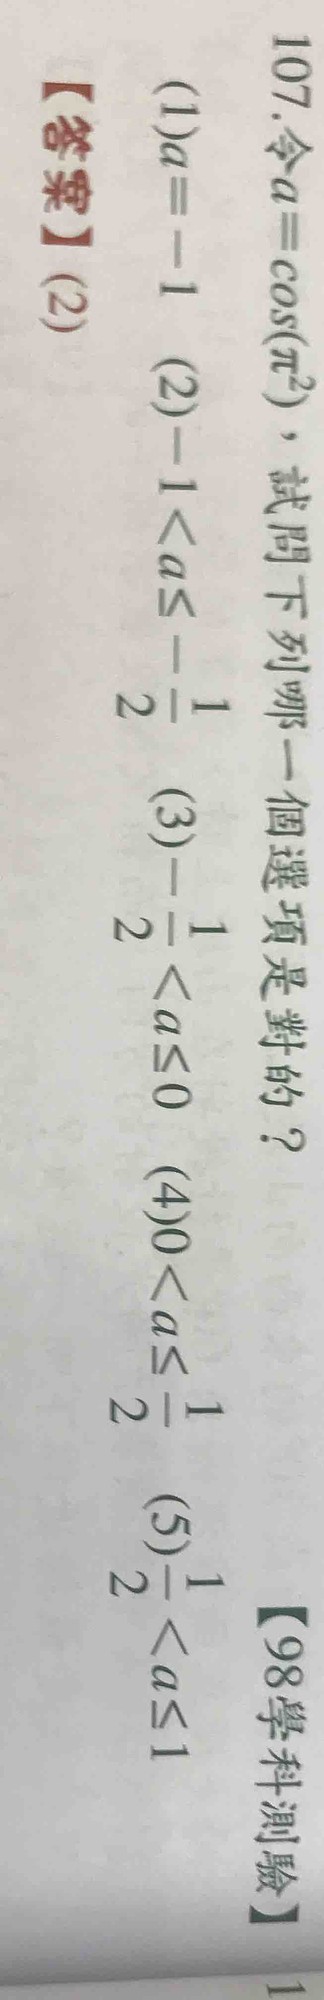 107.令a=cos(π²),試問下列哪一個選項是對的?【98學科測驗】
(1)a=-1 (2)-1<a≤-1/2 (3)-1/2<a≤0 (4)0<a≤1/2 (5)1/2<a≤1
【答案】(2)
1